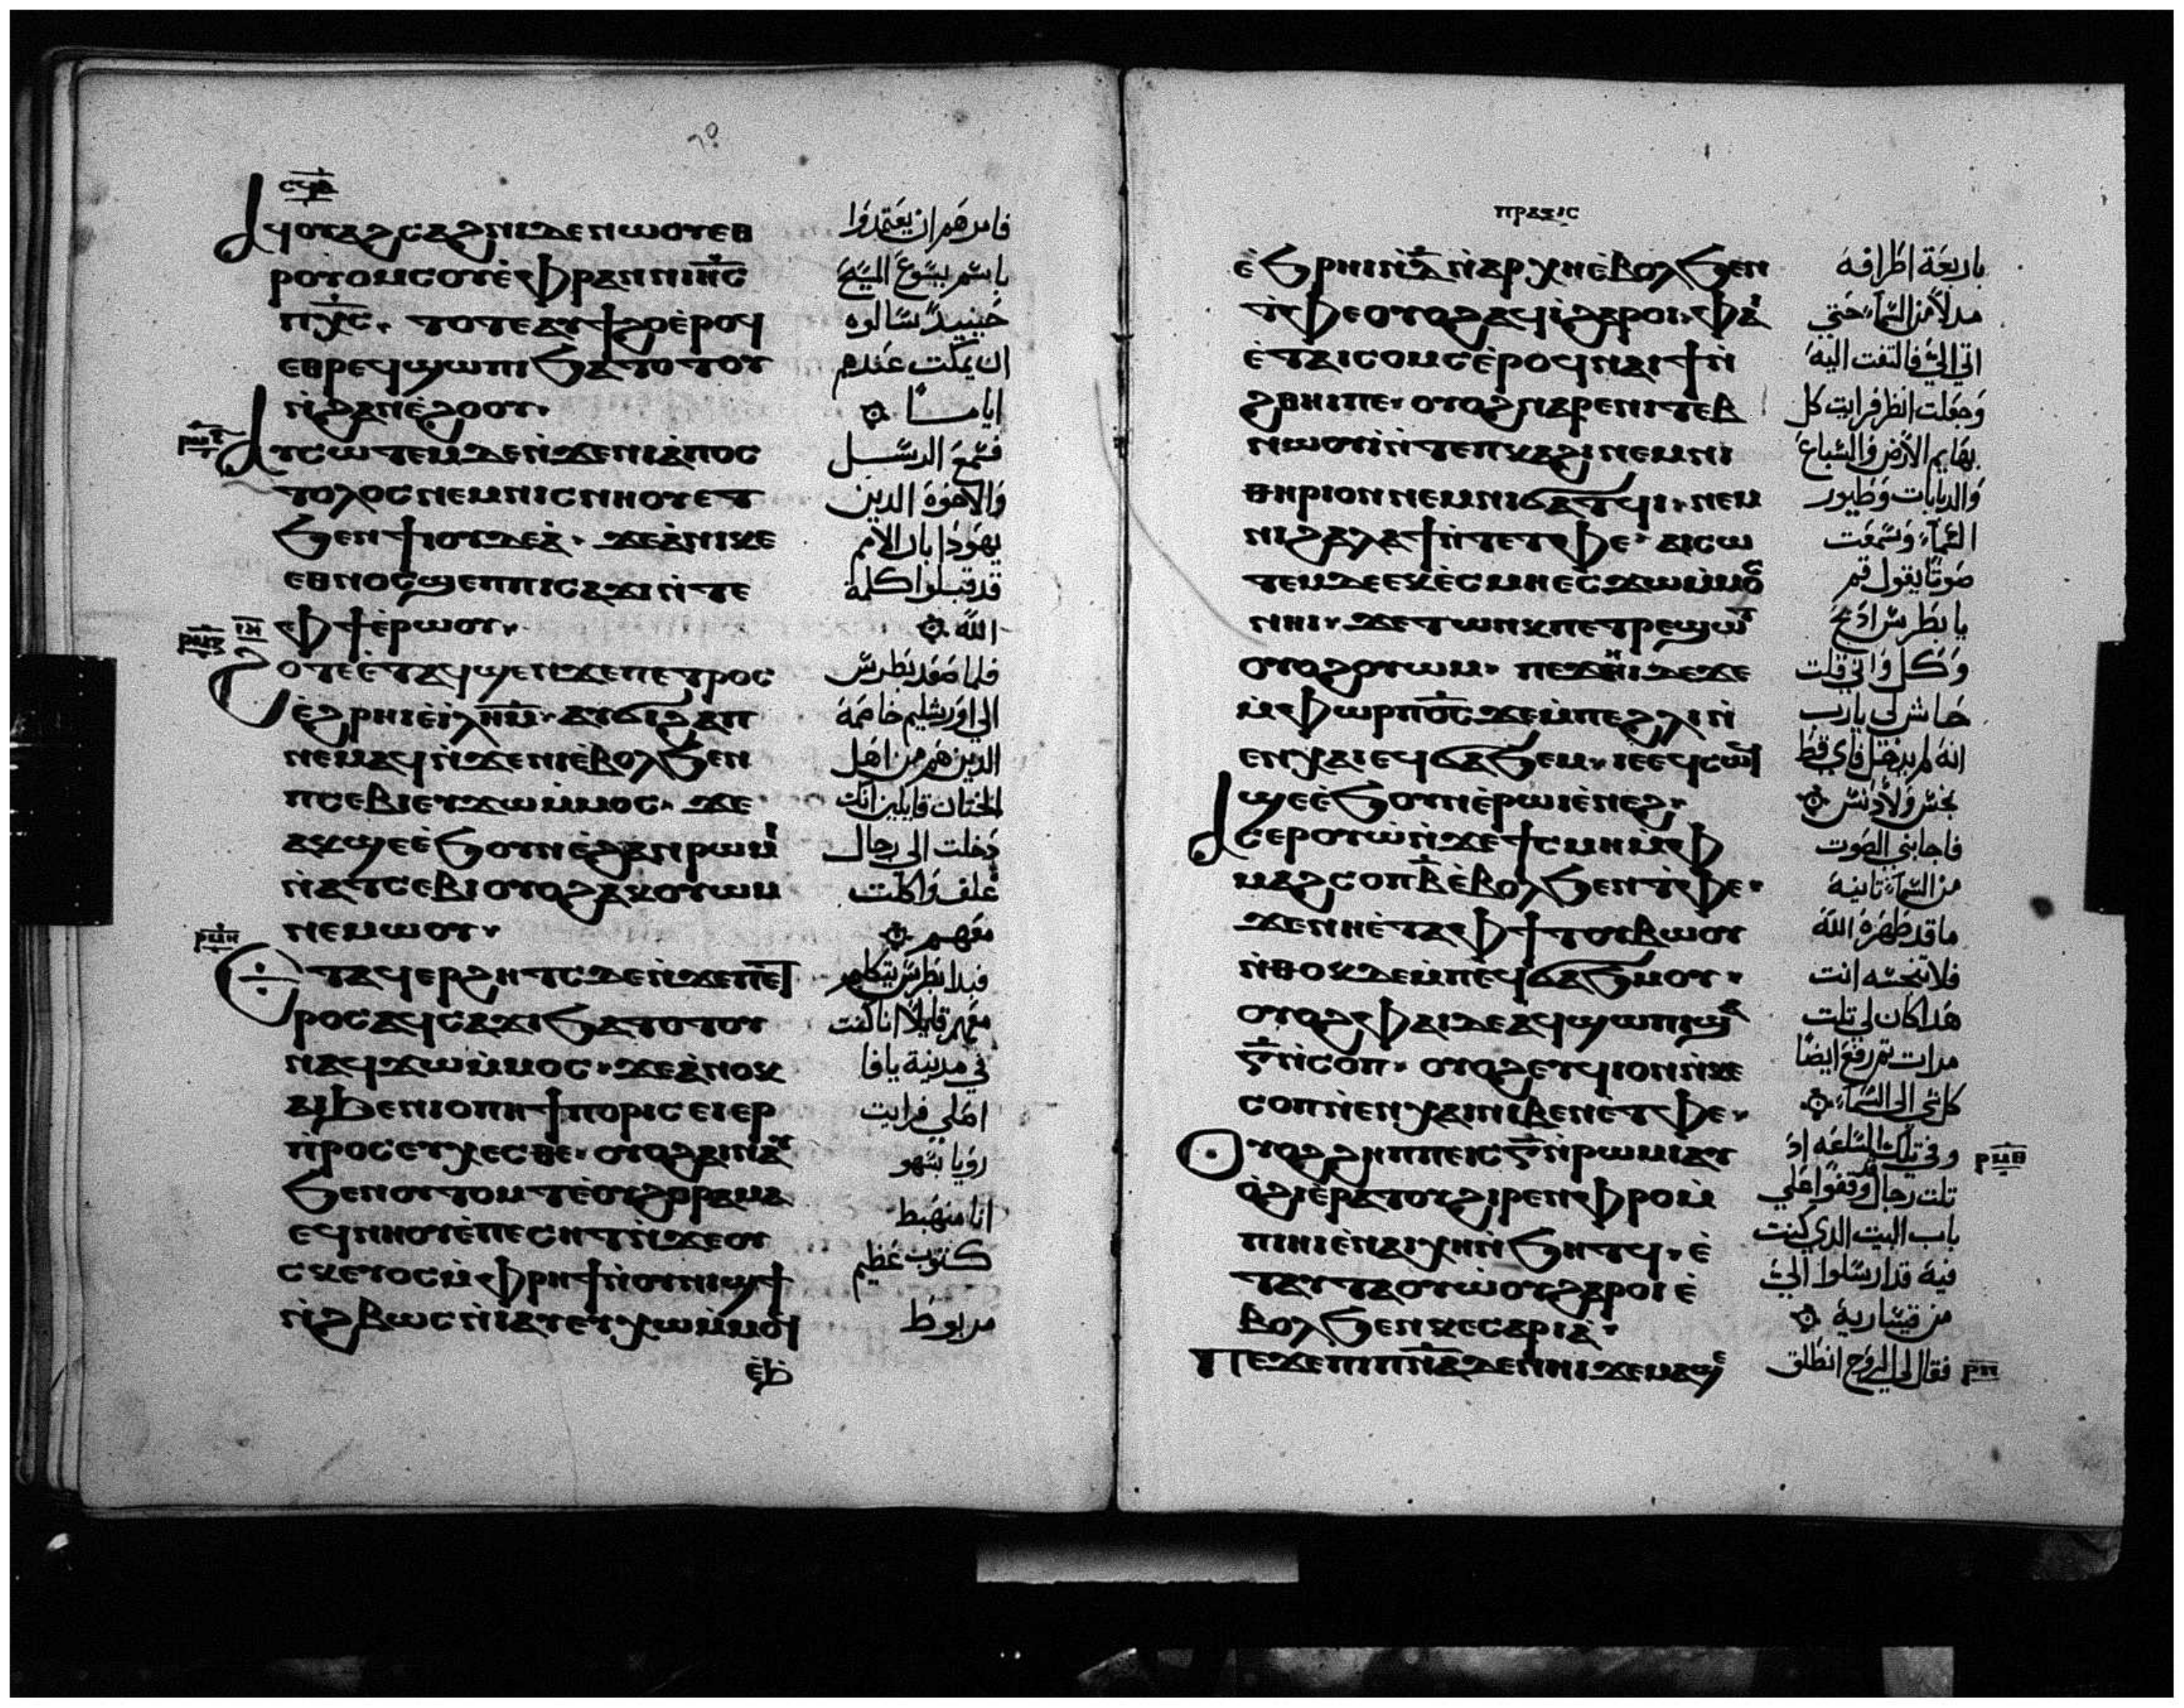 ⲥϥⲃ
ⲁϥⲟⲩⲁϩⲥⲁϩⲛⲓⲇⲉⲛⲱⲟⲩⲉⲑ
ⲣⲟⲩⲟⲙⲥⲟⲩⲉ̀ⲫⲣⲁⲛⲛⲓⲏ̅ⲥ̅
ⲡⲭ̅ⲥ̅. ⲧⲟⲧⲉⲁⲩϯϩⲟⲉ̀ⲣⲟϥ
ⲉⲑⲣⲉϥϣⲱⲡⲓϧⲁⲧⲟⲧⲟⲩ
ⲛ̀ϩⲁⲛⲉ̀ϩⲟⲟⲩ.
ⲁⲩⲥⲱⲧⲉⲙⲇⲉⲛ̀ϫⲉⲛⲓⲁ̀ⲡⲟⲥ
ⲧⲟⲗⲟⲥⲛⲉⲙⲛⲓⲥⲛⲏⲟⲩⲉⲧ
ϧⲉⲛϯⲓⲟⲩⲇⲉⲁ̀. ϫⲉⲁ̀ⲛⲓⲕⲉ
ⲉⲑⲛⲟⲥϣⲉⲡⲡⲓⲥⲁϫⲓⲛ̀ⲧⲉ
ⲫϯⲉ̀ⲣⲱⲟⲩ.
ϩⲟⲧⲉⲉ̀ⲧⲁϥϣⲉⲛϫⲉⲡⲉⲧⲣⲟⲥ
ⲉ̀ϩⲣⲏⲓⲉ̀ⲓ̀ⲗⲏ̅ⲙ̅. ⲁⲩϭⲓϩⲁⲡ
ⲛⲉⲙⲁϥⲛ̀ϫⲉⲛⲓⲉ̀ⲃⲟⲗϧⲉⲛ
ⲡⲥⲉⲃⲓⲉⲩϫⲱⲙ̀ⲙⲟⲥ. ϫⲉ
ⲁⲕϣⲉⲉ̀ϧⲟⲩⲛⲉ̀ϩⲁⲛⲣⲱⲙⲓ
ⲛ̀ⲁⲧⲥⲉⲃⲓⲟⲩⲟϩⲁⲕⲟⲩⲱⲙ
ⲛⲉⲙⲱⲟⲩ.
ⲉⲧⲁϥⲉⲣϩⲏⲧⲥⲇⲉⲛ̀ϫⲉⲡⲉⲧ
ⲣⲟⲥⲁϥⲥⲁϫⲓϧⲁⲧⲟⲧⲟⲩ
ⲛⲁϥϫⲱⲙ̀ⲙⲟⲥ. ϫⲉⲁ̀ⲛⲟⲕ
ⲁⲓϧⲉⲛⲓⲟⲡⲏϯⲡⲟⲗⲓⲥⲉⲓⲉⲣ
ⲡ̀ⲣⲟⲥⲉⲩⲭⲉⲥⲑⲉ. ⲟⲩⲟϩⲁⲓⲛⲁⲩ
ϧⲉⲛⲟⲩⲧⲟⲙⲧⲉ̀ⲟⲩϩⲟⲣⲁⲙⲁ
ⲉϥⲛⲏⲟⲩⲉ̀ⲡⲉⲥⲏⲧⲛ̀ϫⲉⲟⲩ
ⲥⲕⲉⲩⲟⲥⲙ̀ⲫⲣⲏϯⲛ̀ⲟⲩⲛⲓϣϯ
ⲛ̀ϩⲃⲱⲥⲛ̀ⲓⲁⲩⲉⲩⲭⲱⲙ̀ⲙⲟϥ
فامرهم ان يعتمدوا
باسم يسوع المسيح
حينيد سالوه
ان يمكث عندهم
اياما
فسمع الرسل
والاخوة الدين
يهودا بان الامم
قد قبلوا كلمة
الله
فلما صعد بطرس
الى اورشليم خاصمه
الدين هم من اهل
الختان قايلين انك
دخلت الى رجال
غلف واكلت
معهم
فبدا بطرس يتكلم
معهم قايلا انا كنت
في مدينة يافا
اصلي فرايت
رويا بسهو
انا منهبط
كتوب عظيم
مربوط
ⲡⲣⲁⲝⲓⲥ
ⲉ̀ϧⲣⲏⲓⲛ̀ⲇ̅ⲛ̀ⲁⲣⲭⲏⲉ̀ⲃⲟⲗϧⲉⲛ
ⲧ̀ⲫⲉⲟⲩⲟϩⲁϥⲓ̀ϩⲁⲣⲟⲓ. ⲫⲁⲓ
ⲉ̀ⲧⲁⲓⲥⲟⲙⲥⲉ̀ⲣⲟϥⲛⲁⲓϯⲛ̀
ϩⲑⲏⲓⲡⲉ. ⲟⲩⲟϩⲛⲁⲣⲉⲛⲓⲧⲉⲃ
ⲛⲱⲟⲩⲓ̀ⲛ̀ⲧⲉⲡⲕⲁϩⲓⲛⲉⲙⲛⲓ
ⲑⲏⲣⲓⲟⲛⲛⲉⲙⲛⲓϭⲁⲧϥⲓ. ⲛⲉⲙ
ⲛⲓϩⲁⲗⲁϯⲛ̀ⲧⲉⲧⲫⲉ. ⲁⲓⲥⲱ
ⲧⲉⲙⲇⲉⲉⲕⲉ̀ⲥⲙⲏⲉⲥϫⲱⲙ̀ⲙⲟⲥ
ⲛⲏⲓ. ϫⲉⲧⲱⲛⲕⲡⲉⲧⲣⲉϣⲱⲧ
ⲟⲩⲟϩⲟⲩⲱⲙ. ⲡⲉϫⲏⲓⲇⲉϫⲉ
ⲙ̀ⲫⲱⲣⲡⲟ̅ⲥ̅ϫⲉⲙ̀ⲡⲉϩⲗⲓⲛ̀
ⲉⲛⲭⲁⲓⲉϥϭⲁϧⲉⲙ. ⲓⲉⲉϥⲥⲱϥ
ϣⲉⲉ̀ϧⲟⲩⲛⲉ̀ⲣⲱⲓⲉ̀ⲛⲉϩ.
ⲁⲥⲉⲣⲟⲩⲱ̀ⲛ̀ϫⲉϯⲥⲙⲏⲙ̀ⲫ
ⲙⲁϩⲥⲟⲡⲃ̅ⲉ̀ⲃⲟⲗϧⲉⲛⲧ̀ⲫⲉ.
ϫⲉⲛⲏⲉ̀ⲧⲁⲫϯⲧⲟⲩⲃⲱⲟⲩ
ⲛ̀ⲑⲟⲕⲇⲉⲙ̀ⲡⲉϥϭⲁϧⲙⲟⲩ.
ⲟⲩⲟϩⲫⲁⲓⲇⲉⲁϥϣⲱⲡⲓϣⲁ
ⲅ̅ⲛ̀ⲥⲟⲡ. ⲟⲩⲟϩⲉⲩϥⲓⲟⲛⲛ̀ⲕⲉ
ⲥⲟⲡⲛ̀ⲉⲛⲭⲁⲓⲛⲓⲃⲉⲛⲉ̀ⲧⲫⲉ.
ⲟⲩⲟϩϩⲏⲡⲡⲉⲓⲥⲅ̅ⲛ̀ⲣⲱⲙⲓⲁⲩ
ⲟ̀ϩⲓⲉ̀ⲣⲁⲧⲟⲩϩⲓⲣⲉⲛⲫⲣⲟⲙ̀
ⲡⲓⲏⲓⲉ̀ⲛⲁⲓⲭⲏⲛ̀ϧⲏⲧϥ. ⲉ̀
ⲧⲁⲩⲧⲁⲟⲩⲱ̀ⲟⲩϩⲁⲣⲟⲓⲉ̀
ⲃⲟⲗϧⲉⲛⲕⲉⲥⲁⲣⲓⲁ̀.
ⲡⲉϫⲉⲡⲓⲡⲛ̅ⲁ̅ⲇⲉⲛⲏⲓϫⲉⲙⲁϣⲉ
باربعة اطرافه
مدلا من السما حتي
اتى الي فالتفت اليه
وجعلت انظر فرايت كل
بهايم الارض والسباع
والدبابات وطيور
السما وسمعت
صوتا يقول قم
يا بطرس ادبح
وكل واني قلت
حاش لي يا رب
انه لم يدخل فاي قط
نجس ولا دنس
فاجابني الصوت
من السما تانيه
ما قد طهره الله
فلا تنجسه انت
هدا كان لي تلت
مرات تم رفع ايضا
كل شي الى السما
وفي تلك الساعه اد
تلت رجال قد وقفوا علي
باب البيت الدي كنت
فيه قد ارسلوا الي
من قيسارية
فقال لي الروح انطلق